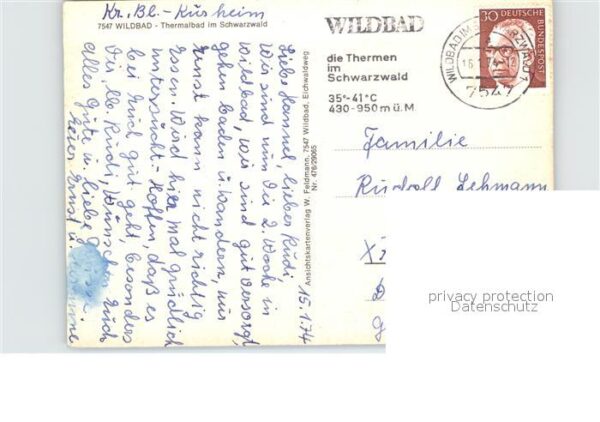 Kr. Bl. - Kursheim
7547 WILDBAD - Thermalbad im Schwarzwald
15.1.74
Liebe Hannel, lieber Rudi,
Wir sind nun die 2. Woche in
Wildbad, wir sind gut versorgt,
gehen baden u. wandern, nur
Ernst kann nicht richtig
Essen. Wird hier mal gründlich
untersucht. Hoffen, daß es
bei Euch gut geht, besonders
Dir, lb. Rudi, wünschen Euch
alles Gute u. liebe
Euer Ernst u.
Ansichtskartenverlag W. Feldmann, 7547 Wildbad, Eichwaldweg
Nr. 476/29065
WILDBAD
die Thermen
im
Schwarzwald
35°-41°C
430-950 m ü. M.
WILDBAD IM SCHWARZWALD 1
7547
30 DEUTSCHE BUNDESPOST
Familie
Rudolf Lehmann
privacy protection
Datenschutz